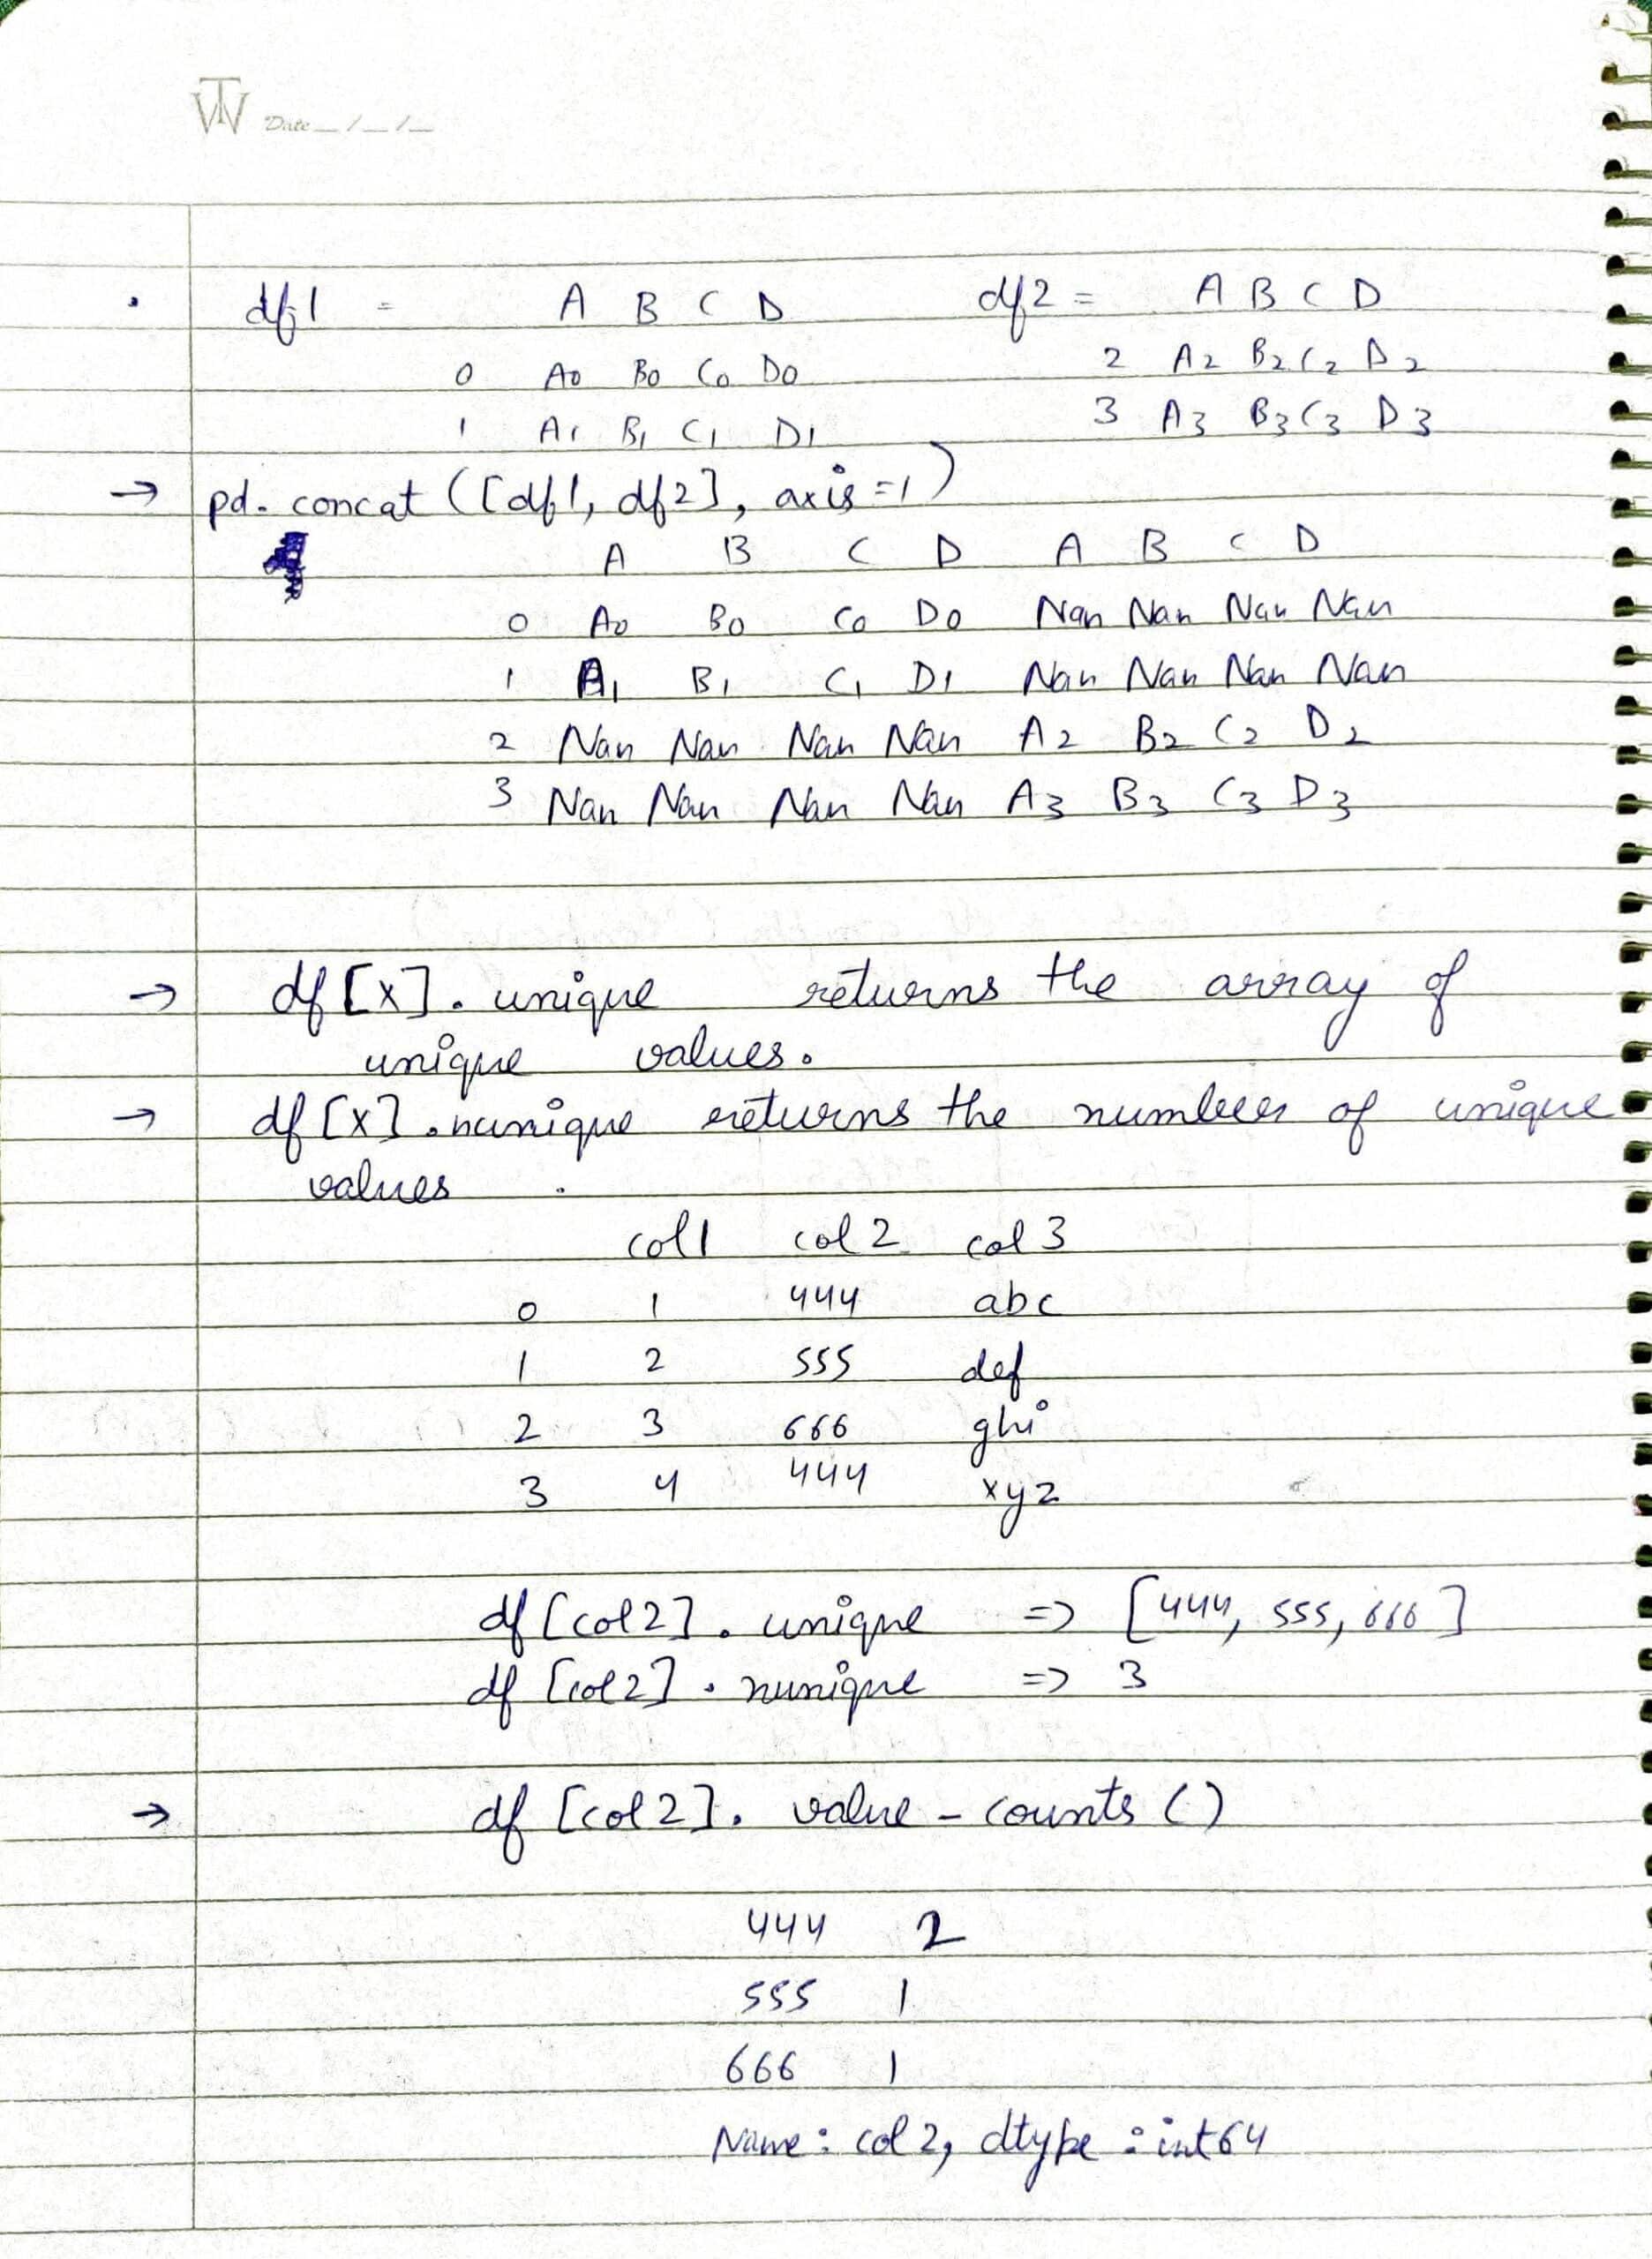 TW Date__/__/__
. df1 = A B C D df2 = A B C D
0 A0 B0 C0 D0 2 A2 B2 C2 D2
1 A1 B1 C1 D1 3 A3 B3 C3 D3
→ pd. concat ([df1, df2], axis=1)
A B C D A B C D
0 A0 B0 C0 D0 Nan Nan Nan Nan
1 A1 B1 C1 D1 Nan Nan Nan Nan
2 Nan Nan Nan Nan A2 B2 C2 D2
3 Nan Nan Nan Nan A3 B3 C3 D3
→ df[x]. unique returns the array of
unique values.
→ df[x].nunique returns the number of unique
values .
col1 col2 col3
0 1 444 abc
1 2 555 def
2 3 666 ghi
3 4 444 xyz
df[col2]. unique => [444, 555, 666]
df [col2]. nunique => 3
→ df [col2]. value - counts ()
444 2
555 1
666 1
Name: col2, dtype : int64